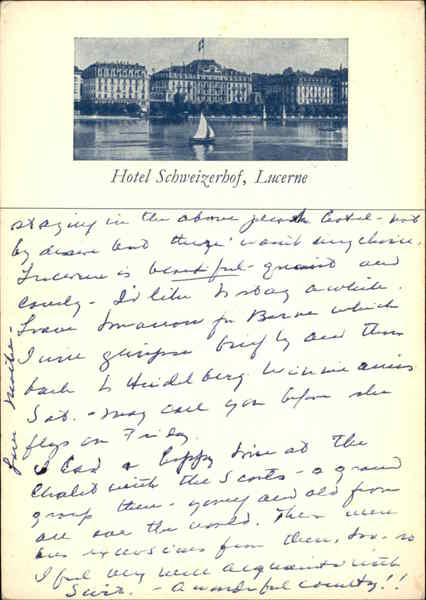 Hotel Schweizerhof, Lucerne
staying in the above hotel - not
by desire but there wasn't any choice.
Lucerne is beautiful - quaint and
lovely - I'd like to stay awhile.
Leave tomorrow for Berne which
I will glimpse briefly and then
back to Heidelberg. Winnie arrives
Sat. - may call you before she
flys on Friday.
I had a happy time at the
Chalet with the Scouts - a grand
group there - young and old from
all over the world. There were
bus excursions from there, too - so
I feel very well acquainted with
Switz. - A wonderful country!!
Love Mother -